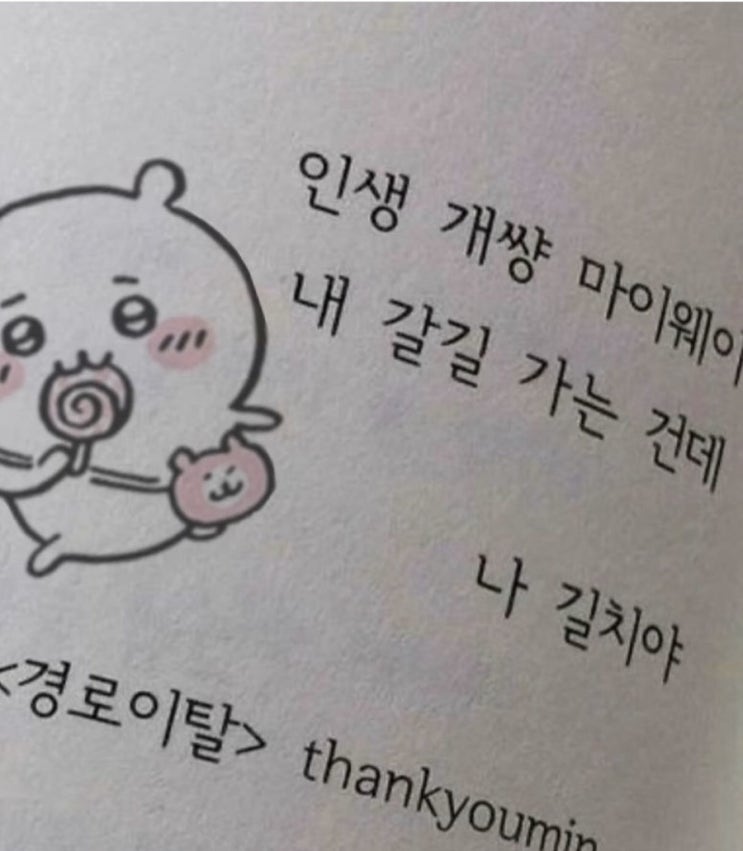 인생 개썅 마이웨이
내 갈길 가는 건데
나 길치야
<경로이탈> thankyoumin